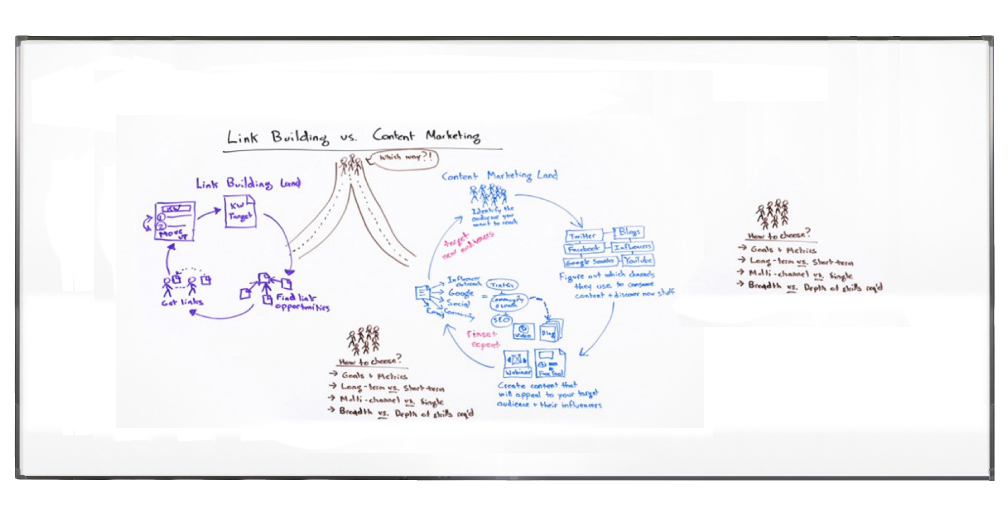 Link Building vs. Content Marketing
Which way?!
Link Building Land
KW
MOVE UP
KW
Target
Find link
opportunities
Get Links
Content Marketing Land
Identify the
audience you
want to reach
Twitter
Blogs
Facebook
Influencers
YouTube
Figure out which channels
they use to consume
content + discover new stuff
Create content that
will appeal to your target
audience + their influencers
Webinar
Video
Blog
Influencer
outreach
Google
Social
Community
Email
=
Traffic
SEO
Rinse +
repeat
Target
new audiences
How to choose?
→ Goals + Metrics
→ Long-term vs. Short-term
→ Multi-channel vs. Single
→ Breadth vs. Depth of skills req'd
How to choose?
→ Goals + Metrics
→ Long-term vs. Short-term
→ Multi-channel vs. Single
→ Breadth vs. Depth of skills req'd